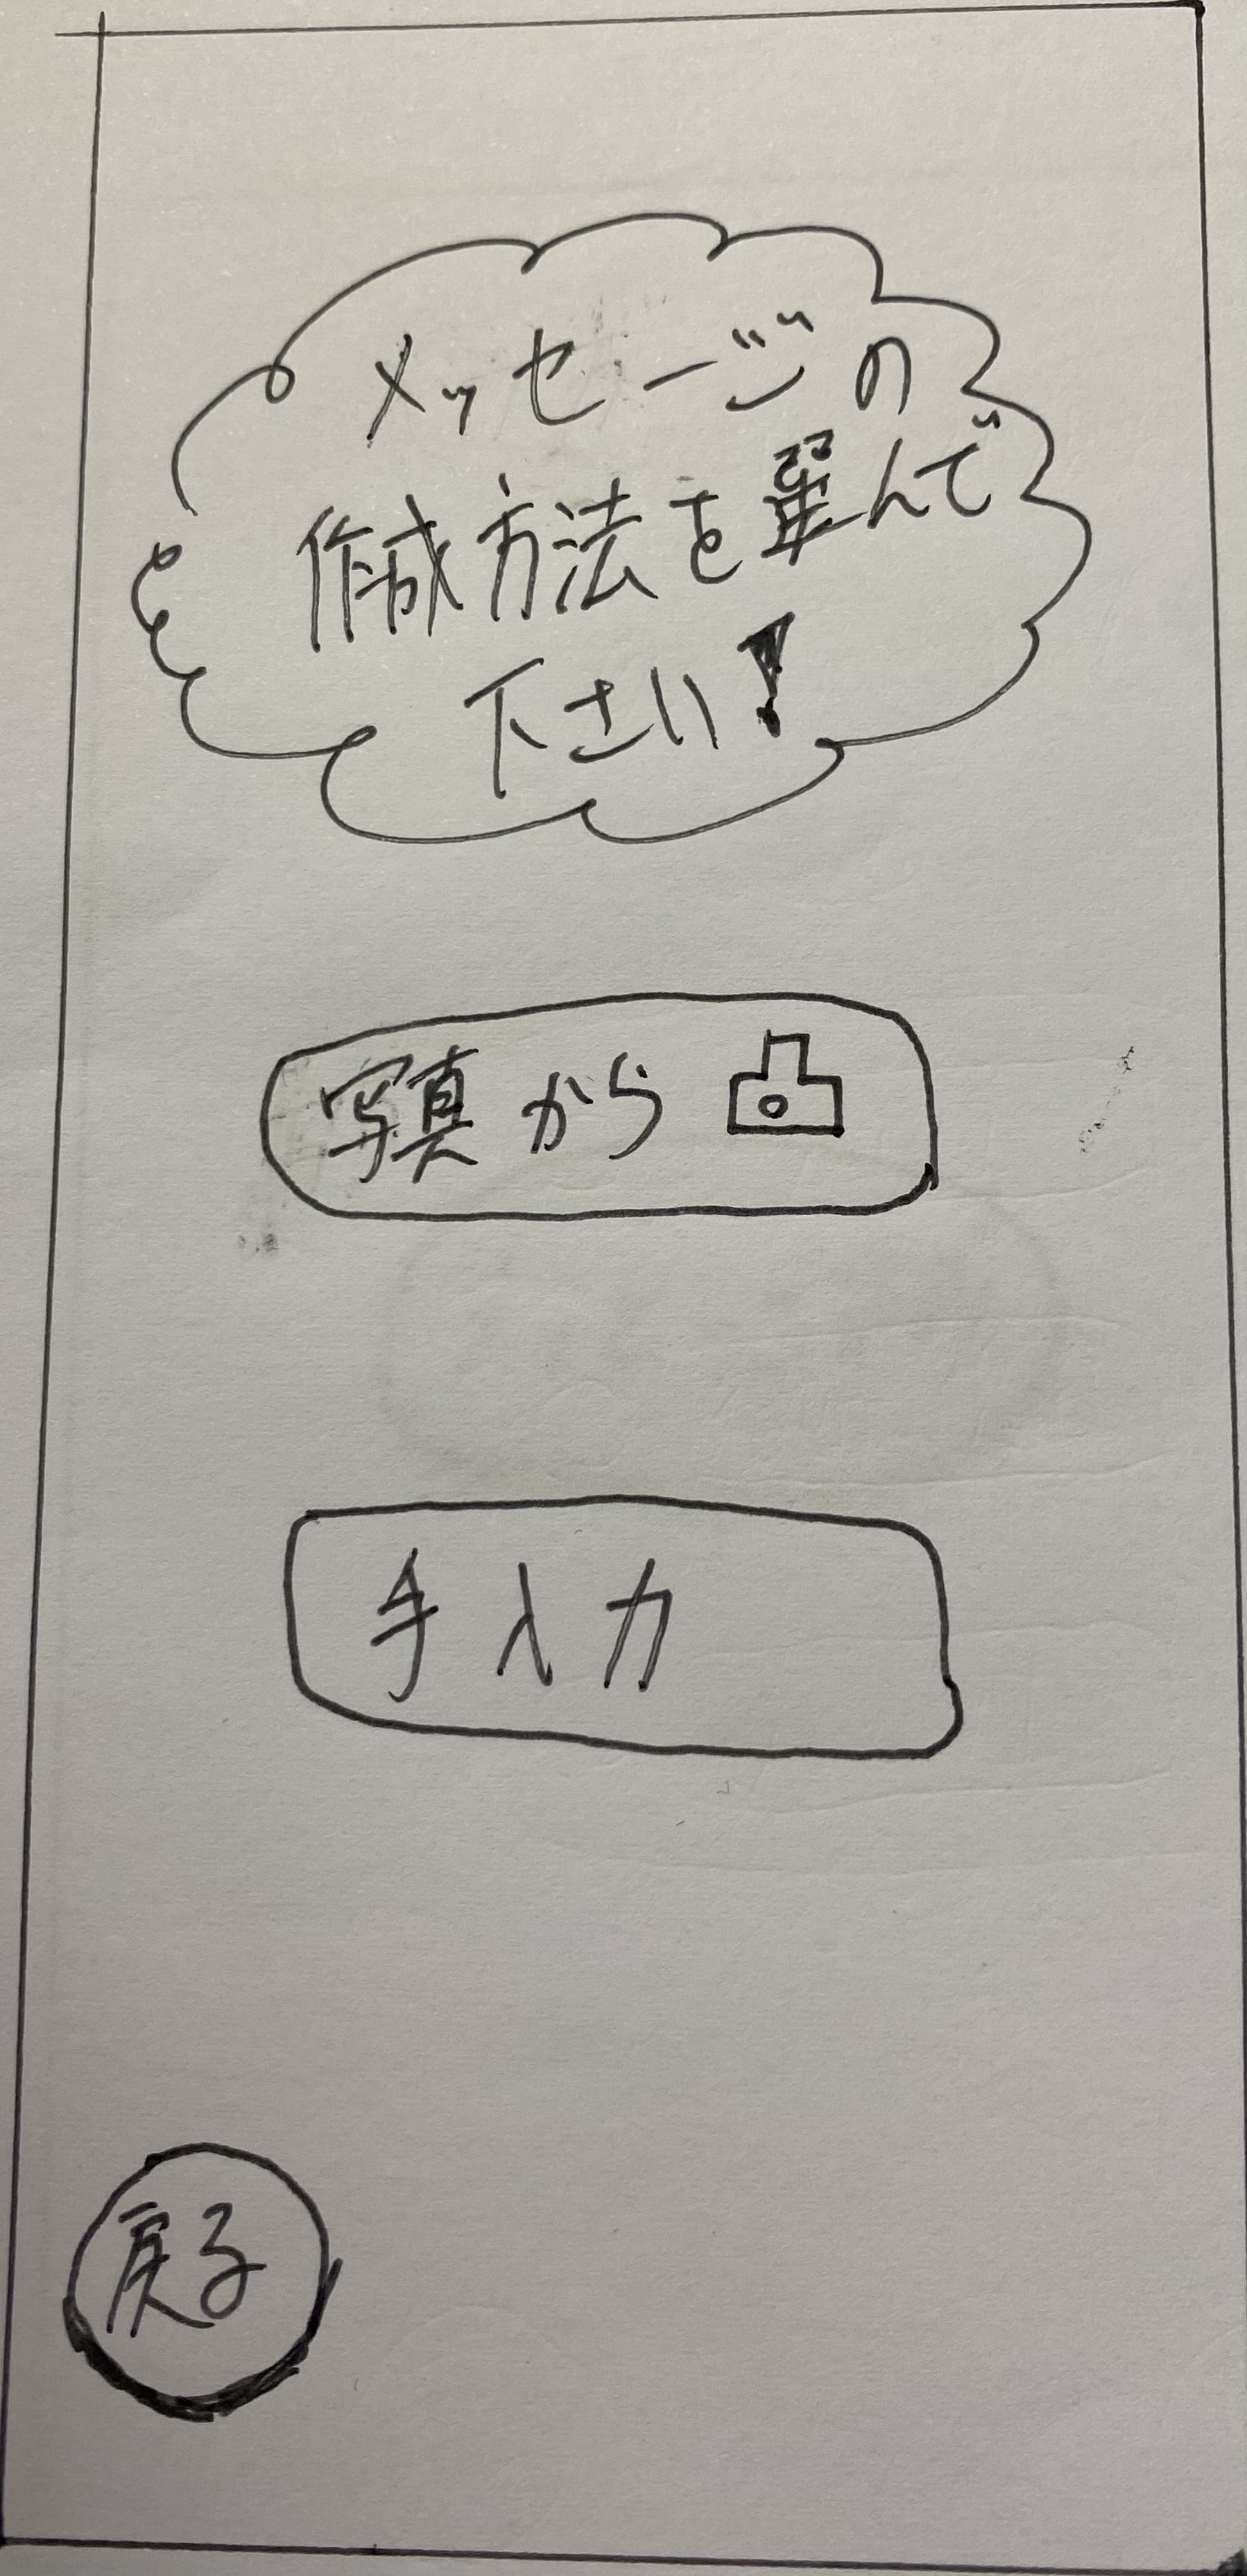 メッセージの
作成方法を選んで
下さい!
写真から
手入力
戻る